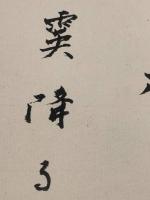 霙降る